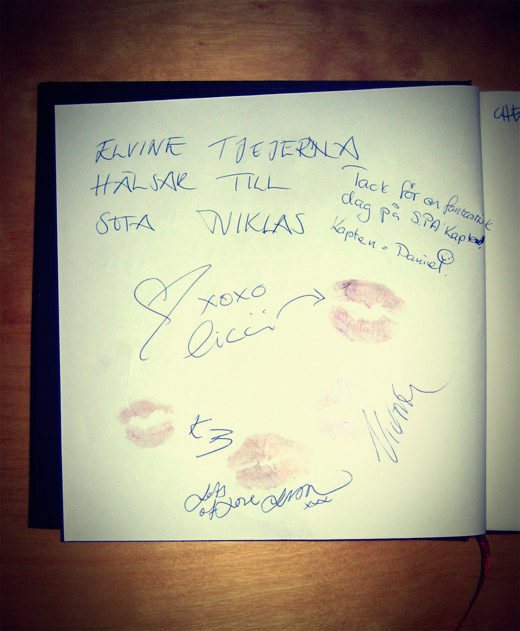 ELVINE TJEJERNA
HÄLSAR TILL
SÖTA NIKLAS
Tack för en fantastisk
dag på SPA Kapten!
Kapten = Daniel!
XOXO
licii
K3
Lots
of Love
xxx
CHE